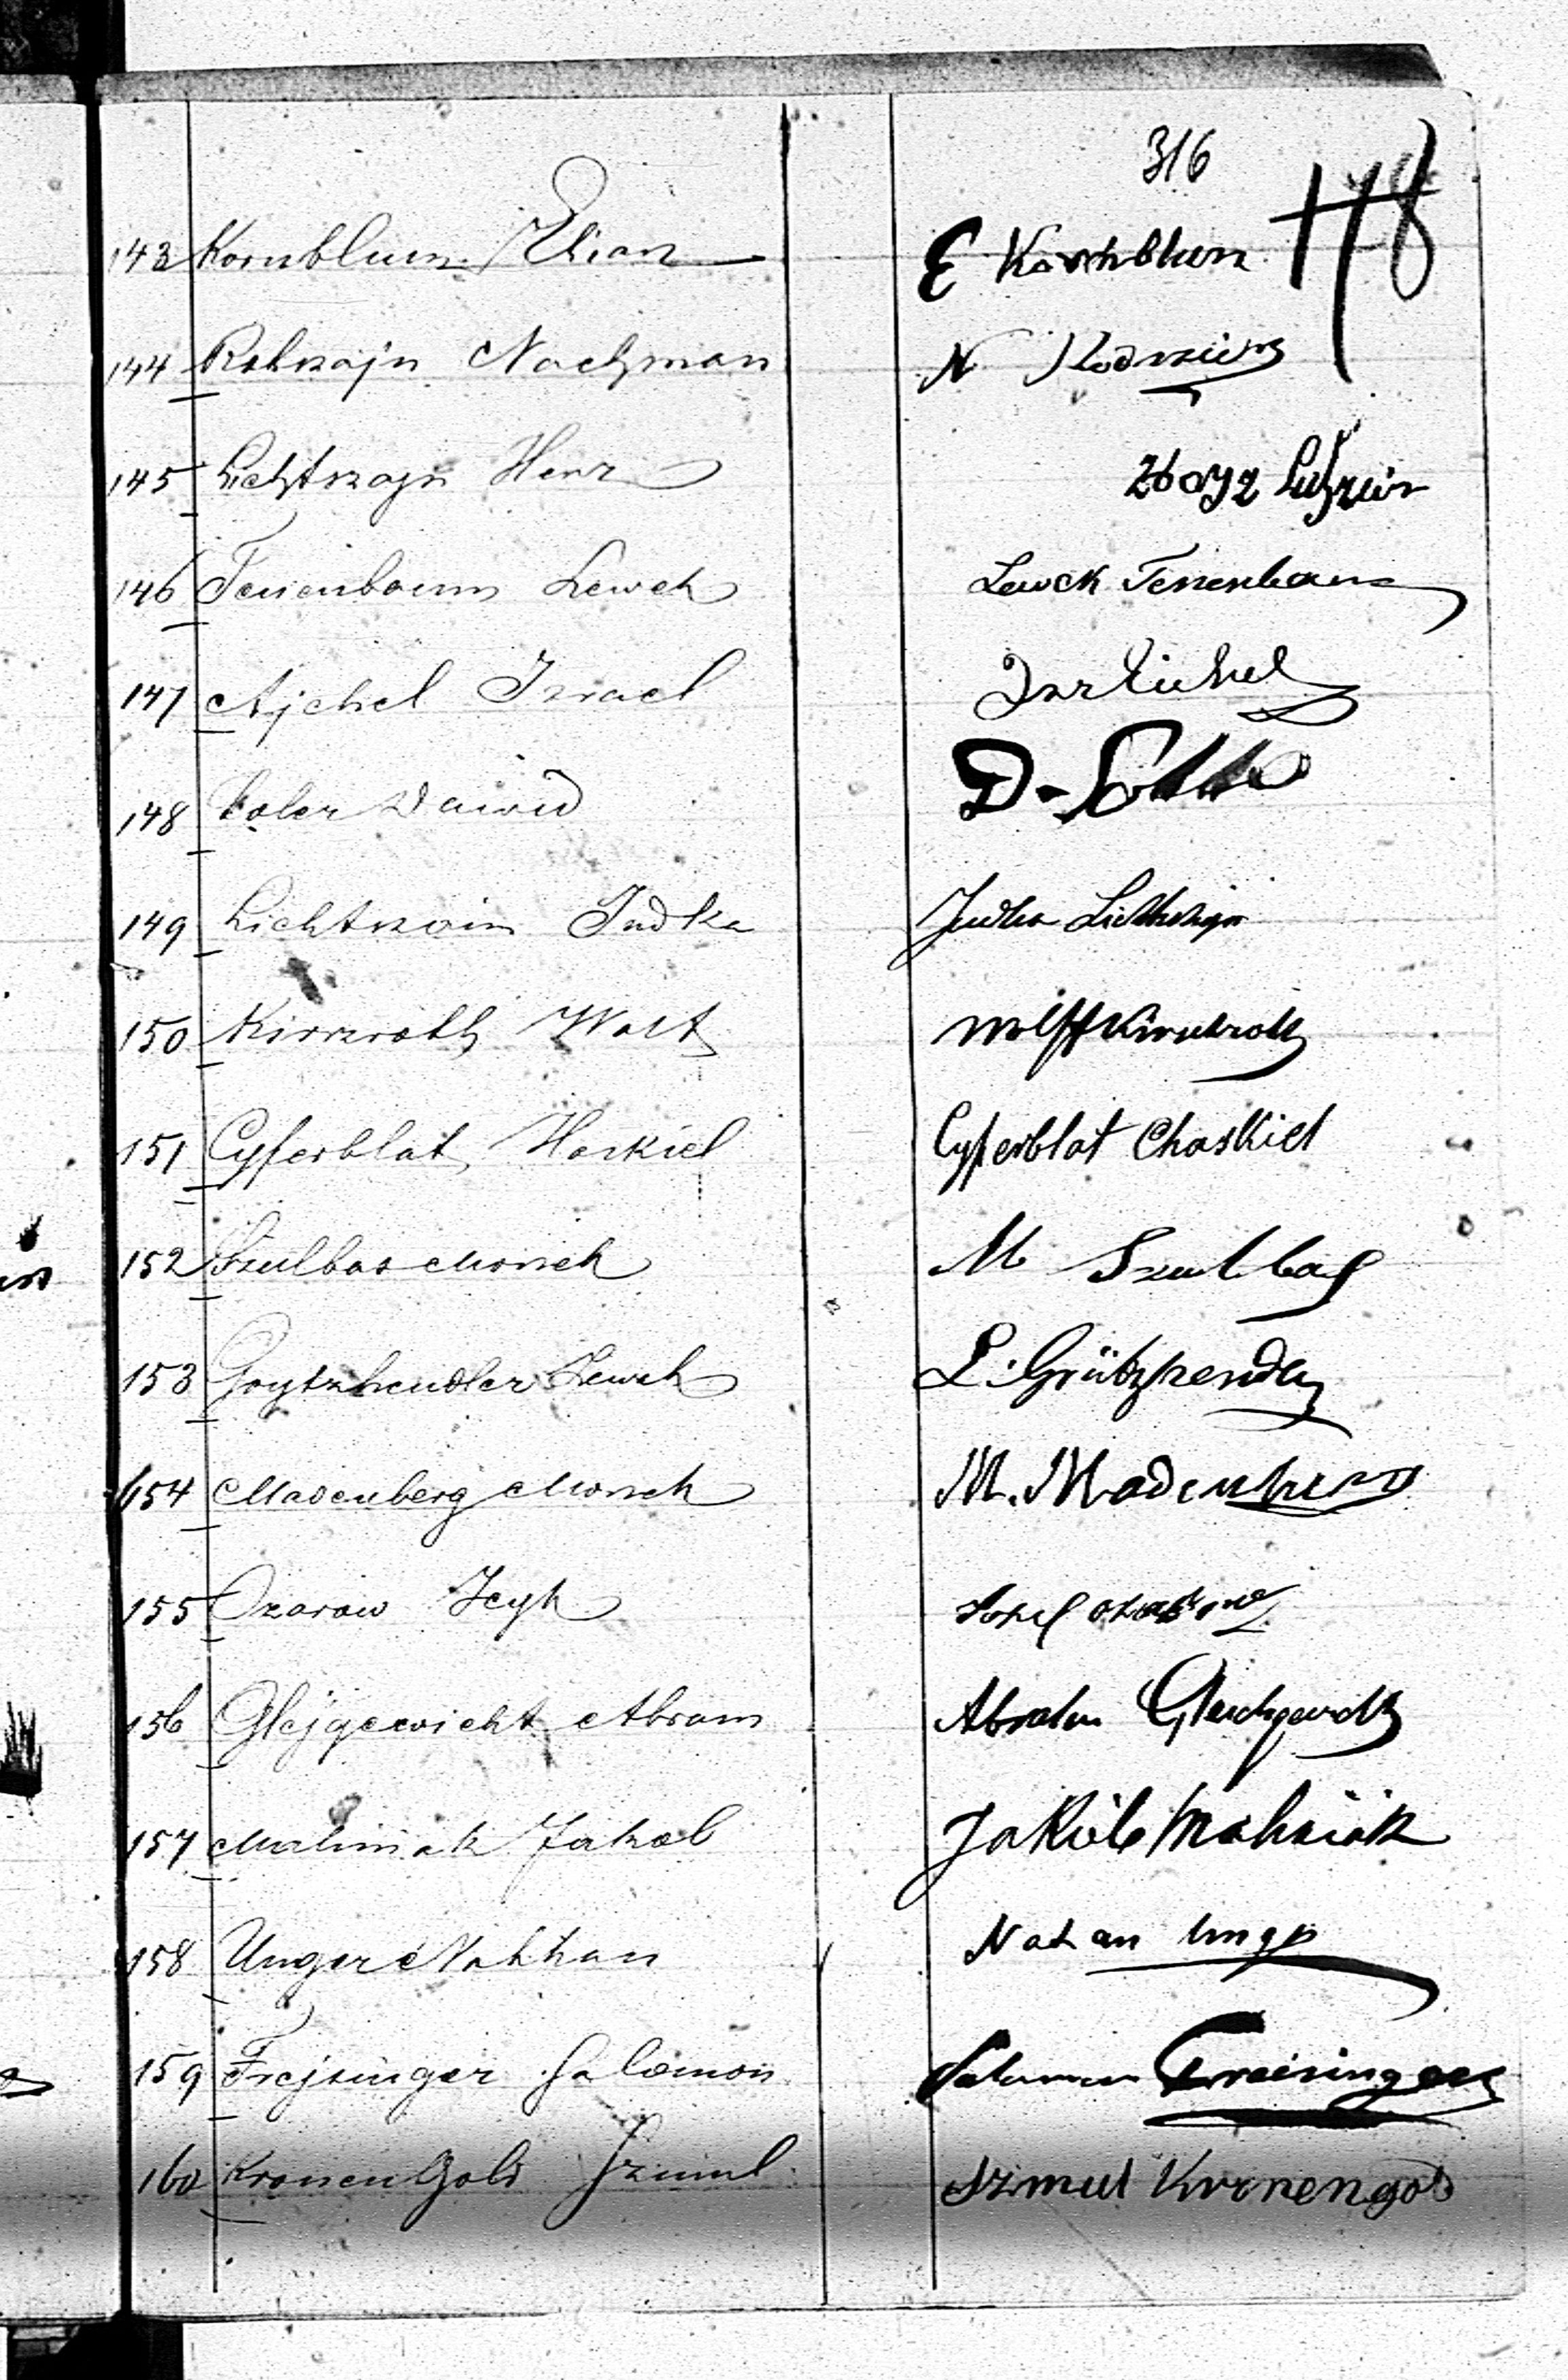 316
118
143 Kornblum Elias E Kornblum
144 Nachman N
145 Lichtszajn Herz
146 Tenenbaum Lewek Lewek Tenenbaum
147 Ajchel Israel Isr Eichel
148 Dawid D-
149 Lichtszain Judka Judka Lichtszajn
150 Kirszroth Wolf Wolff Kirschroth
151 Cyferblat Haskiel Cyferblat Chaskiel
152 Szulbas Moszek M Szulbas
153 Grytzhendler Lewek L. Grützhendler
154 Madenberg Moszek M. Madenberg
155 Ozarow Icyk
156 Glejgewicht Abram Abraham Gleichgewicht
157 Maliniak Jakob Jakob Maliniak
158 Unger Nathan Natan Unger
159 Frejsinger Salomon Salomon Freisinger
160 KronenGold Szmul Szmul Kronengold